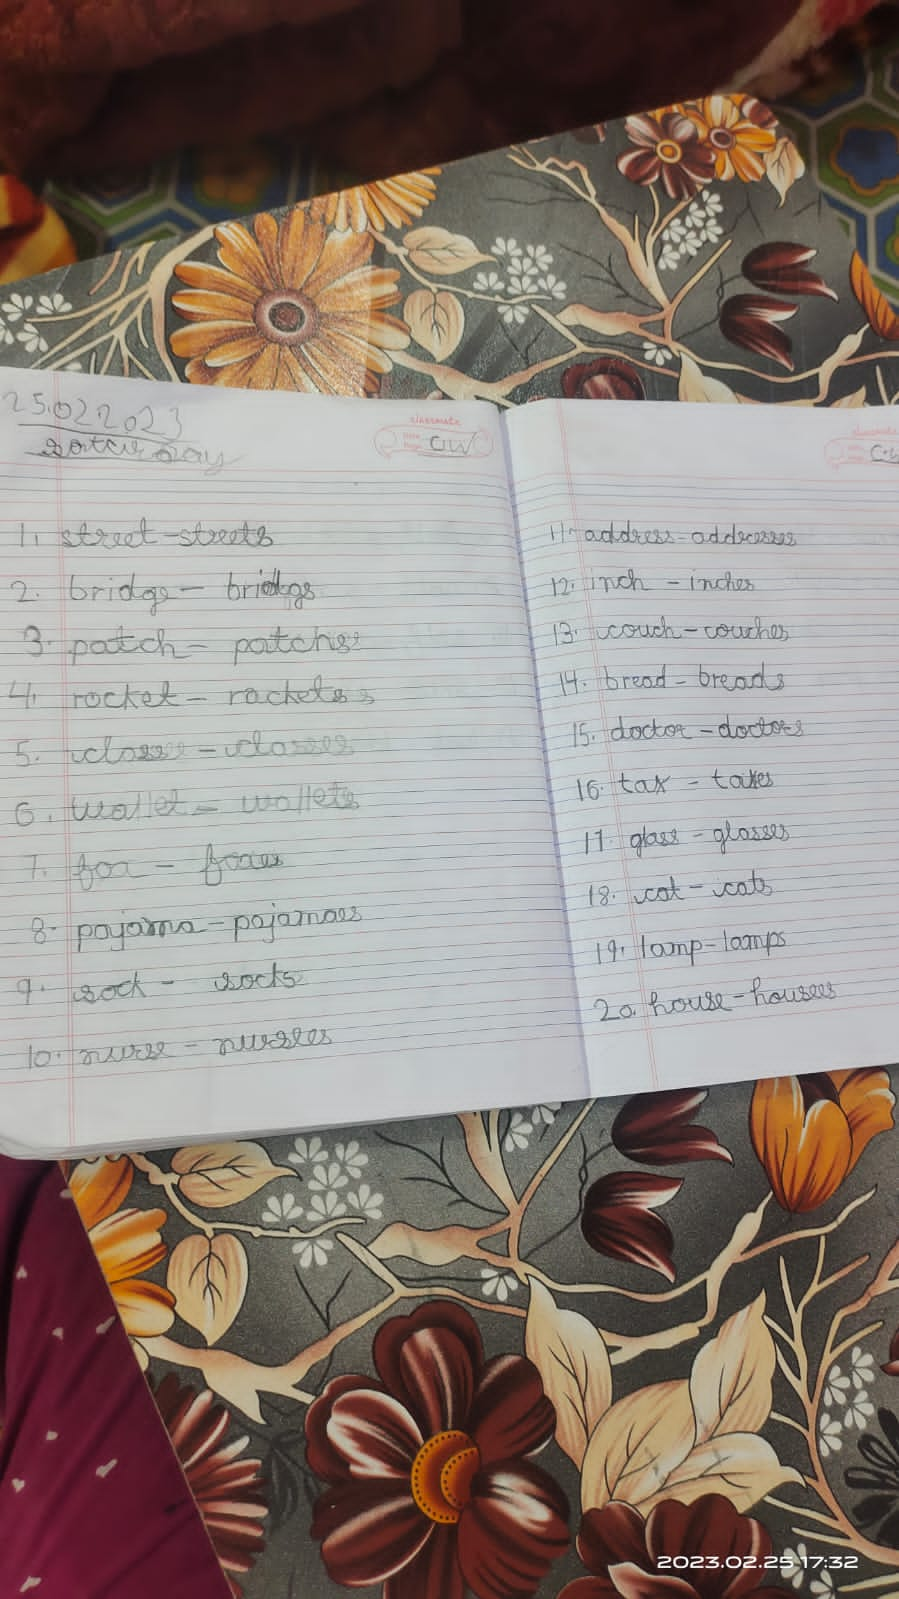 25.02 2023
saturday
classmate
CW
1. street - streets
2. bridge - bridges
3. patch - patches
4. rocket - rackets
5. classe - classes
6. wallet - wallets
7. fox - foxes
8. pajama - pajamaes
9. sock - socks
10. nurse - nurses
classmate
11. address - addresses
12. inch - inches
13. couch - couches
14. bread - breads
15. doctor - doctors
16. tax - taxes
17. glass - glasses
18. cat - cats
19. lamp - lamps
20. house - housees
2023.02.25 17:32